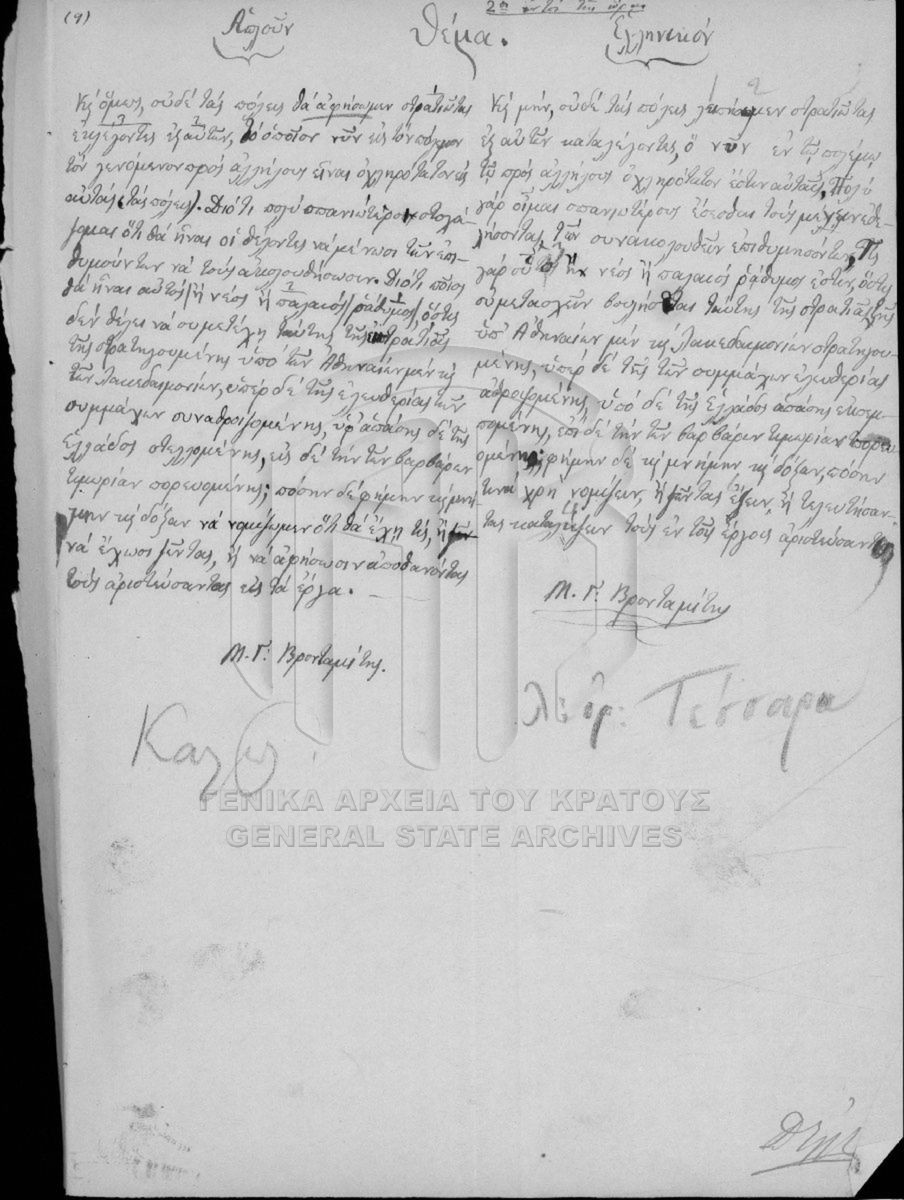 (9)
2ᵃ ἐκ τοῦ τῆς ὥρας
Ἁπλοῦν
Θέμα.
Ἑλληνικόν
Κι' ὅμως, οὐδέ τάς πόλεις θά ἀφήσωμεν στρατιώτας
ἐκλέγοντες ἐξ αὐτῶν, τό ὁποῖον νῦν εἰς τόν πόλεμον
τόν γενόμενον πρός ἀλλήλους εἶναι ὀχληρότατον εἰς
αὐτάς (τάς πόλεις). Διότι πολύ σπανιωτέρους στοχά-
ζομαι ὅτι θά ἦναι οἱ θέλοντες νά μένωσι τῶν ἐπι-
θυμούντων νά τούς ἀκολουθήσωσιν. Διότι ποῖος
θά ἦναι αὐτός ἤ νέος ἤ παλαιός ῥάθυμος, ὅστις
δέν θέλει νά συμετέχῃ ταύτης τῆς στρατιᾶς
τῆς στρατηγουμένης ὑπό τῶν Ἀθηναίων μέν καί
τῶν Λακεδαιμονίων, ὑπέρ δέ τῆς ἐλευθερίας τῶν
συμμάχων συναθροιζομένης, ὑφ' ἁπάσης δέ τῆς
Ἑλλάδος στελλομένης, εἰς δέ τήν τῶν βαρβάρων
τιμωρίαν πορευομένης; πόσην δέ φήμην καί μνή-
μην καί δόξαν νά νομίζωμεν ὅτι θά ἔχῃ τις, ἤ
νά ἔχωσι ζῶντας, ἤ νά ἀφήσωσιν ἀποθανόντας
τούς ἀριστεύσαντας εἰς τά ἔργα.
Μ. Γ. Βρονταμίτης.
Καλῶς
Καί μήν, οὐδέ τάς πόλεις λυπήσομεν στρατιώτας
ἐξ αὐτῶν καταλέγοντες, ὅ νῦν ἐν τῷ πολέμῳ
τῷ πρός ἀλλήλους ὀχληρότατον ἐστιν αὐταῖς. Πολύ
γάρ οἶμαι σπανιωτέρους ἔσεσθαι τούς μένειν ἐθε-
λήσοντας τῶν συνακολουθεῖν ἐπιθυμησόντων. Τίς
γάρ οὕτως ἤ νέος ἤ παλαιός ῥάθυμος ἐστιν, ὅστις
οὐ μετασχεῖν βουλήσεται ταύτης τῆς στρατιᾶς τῆς
ὑπ' Ἀθηναίων μέν καί Λακεδαιμονίων στρατηγου-
μένης, ὑπέρ δέ τῆς τῶν συμμάχων ἐλευθερίας
ἀθροιζομένης, ὑπό δέ τῆς Ἑλλάδος ἁπάσης ἐκπεμ-
πομένης, ἐπί δέ τήν τῶν βαρβάρων τιμωρίαν πορευ-
ομένης; φήμην δέ καί μνήμην καί δόξαν, πόσην
τινά χρή νομίζειν, ἤ ζῶντας ἕξειν, ἤ τελευτήσαν-
τας καταλείψειν τούς ἐν τοῖς ἔργοις ἀριστεύσαντας
Μ. Γ. Βρονταμίτης
Τέσσαρα
ΓΕΝΙΚΑ ΑΡΧΕΙΑ ΤΟΥ ΚΡΑΤΟΥΣ
GENERAL STATE ARCHIVES